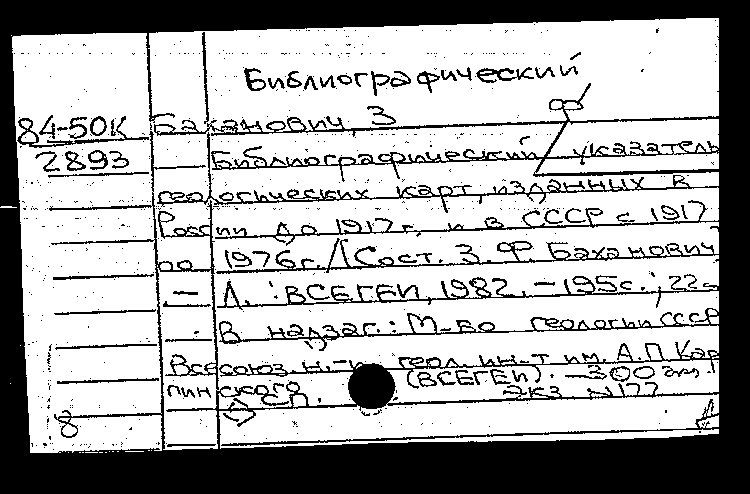 Библиографический
84-50К Баханович, З
2893 Библиографический указатель
геологических карт, изданных в
России до 1917 г. и в СССР с 1917
по 1976 г. / Сост. З. Ф. Баханович
. – Л. : ВСЕГЕИ, 1982. – 195 с. ; 22 см
В надзаг. : М-во геологии СССР
Всесоюз. н.-и. геол. ин-т им. А. П. Кар
пинского (ВСЕГЕИ). – 300 экз.
СП. Экз. N 177
8